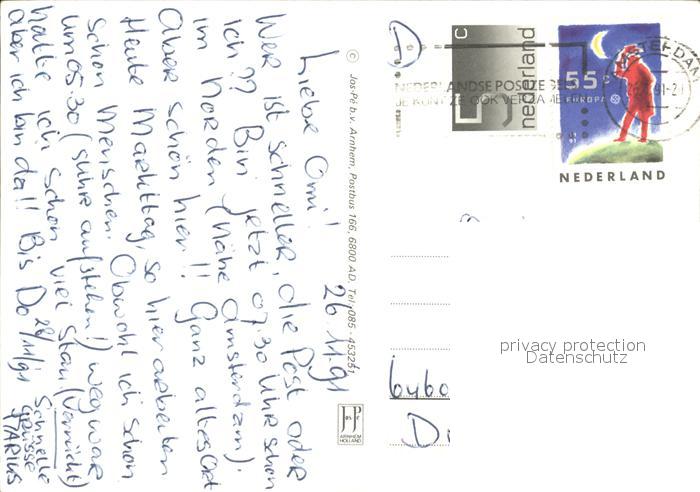 Liebe Omi!
26.11.91
Wer ist schneller, die Post oder
ich?? Bin jetzt 07.30 Uhr schon
im Norden (Nähe Amsterdam).
Aber schön hier!! Ganz altes Ort
Heute Markttag, so hier arbeiten
schon Menschen. Obwohl ich schon
um 05.30 (5 Uhr aufstehen!) weg war
hatte ich schon viel Stau (Verrückt)
aber ich bin da!! Bis Do 28/11/91
Schnelle
Grüsse
© Jos-Pé b.v. Arnhem, Postbus 166, 6800 AD, Tel. 085 - 453251
JosPé
ARNHEM
HOLLAND
D
c
nederland
NEDERLANDSE POSTZE
JE KUNT ZE OOK
55 c
EUROPA
NEDERLAND
AMSTERDAM
privacy protection
Datenschutz
6460
D